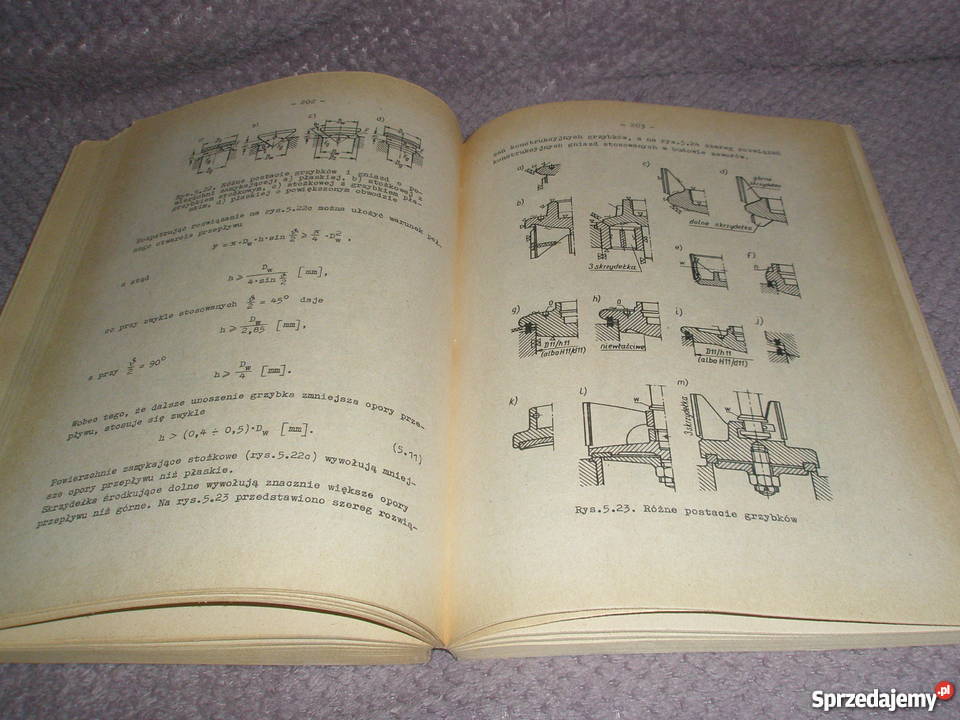 - 202 -
a)
b)
c)
d)
Rys.5.22. Różne postacie grzybków i gniazd o po-
wierzchni zamykającej: a) płaskiej, b) stożkowej z
grzybkiem środkowym, c) stożkowej z grzybkiem pła-
skim, d) płaskiej o powiększonym obwodzie
Rozpatrując rozwiązanie na rys.5.22c można ułożyć warunek peł-
nego otwarcia przepływu
a stąd
h ≥ [mm],
co przy zwykle stosowanych = 45° daje
h ≥ D_w / 2,85 [mm],
a przy = 90°
h ≥ D_w / 4 [mm].
Wobec tego, że dalsze unoszenie grzybka zmniejsza opory prze-
pływu, stosuje się zwykle
h > (0,4 ÷ 0,5)·D_w [mm].
(5.11)
Powierzchnie zamykające stożkowe (rys.5.22c) wywołują mniej-
sze opory przepływu niż płaskie.
Skrzydełka środkujące dolne wywołują znacznie większe opory
przepływu niż górne. Na rys.5.23 przedstawiono szereg rozwią-
- 203 -
zań konstrukcyjnych grzybków, a na rys.5.24 szereg rozwiązań
konstrukcyjnych gniazd stosowanych w budowie zaworów.
a)
c)
d)
górne
skrzydełka
dolne skrzydełka
b)
3 skrzydełka
e)
f)
g)
h)
i)
j)
D11/h11
(albo H11/d11)
niewłaściwe
D11/h11
(albo H11/d11)
k)
l)
m)
w
3 skrzydełka
w
Rys.5.23. Różne postacie grzybków
Sprzedajemy.pl